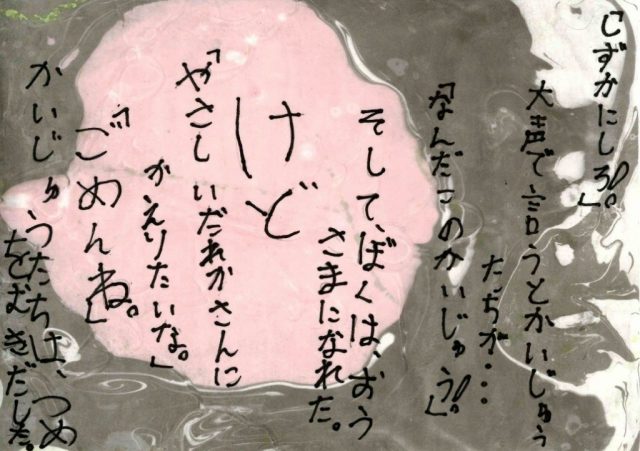 「しずかにしろ!。」
大声で言うとかいじゅう
たちが・・・
「なんだこのかいじゅう!。」
そして、ぼくは、おう
さまになれた。
けど
「やさしいだれかさんに
かえりたいな。」
「ごめんね。」
かいじゅうたちは、つめ
をむきだした。